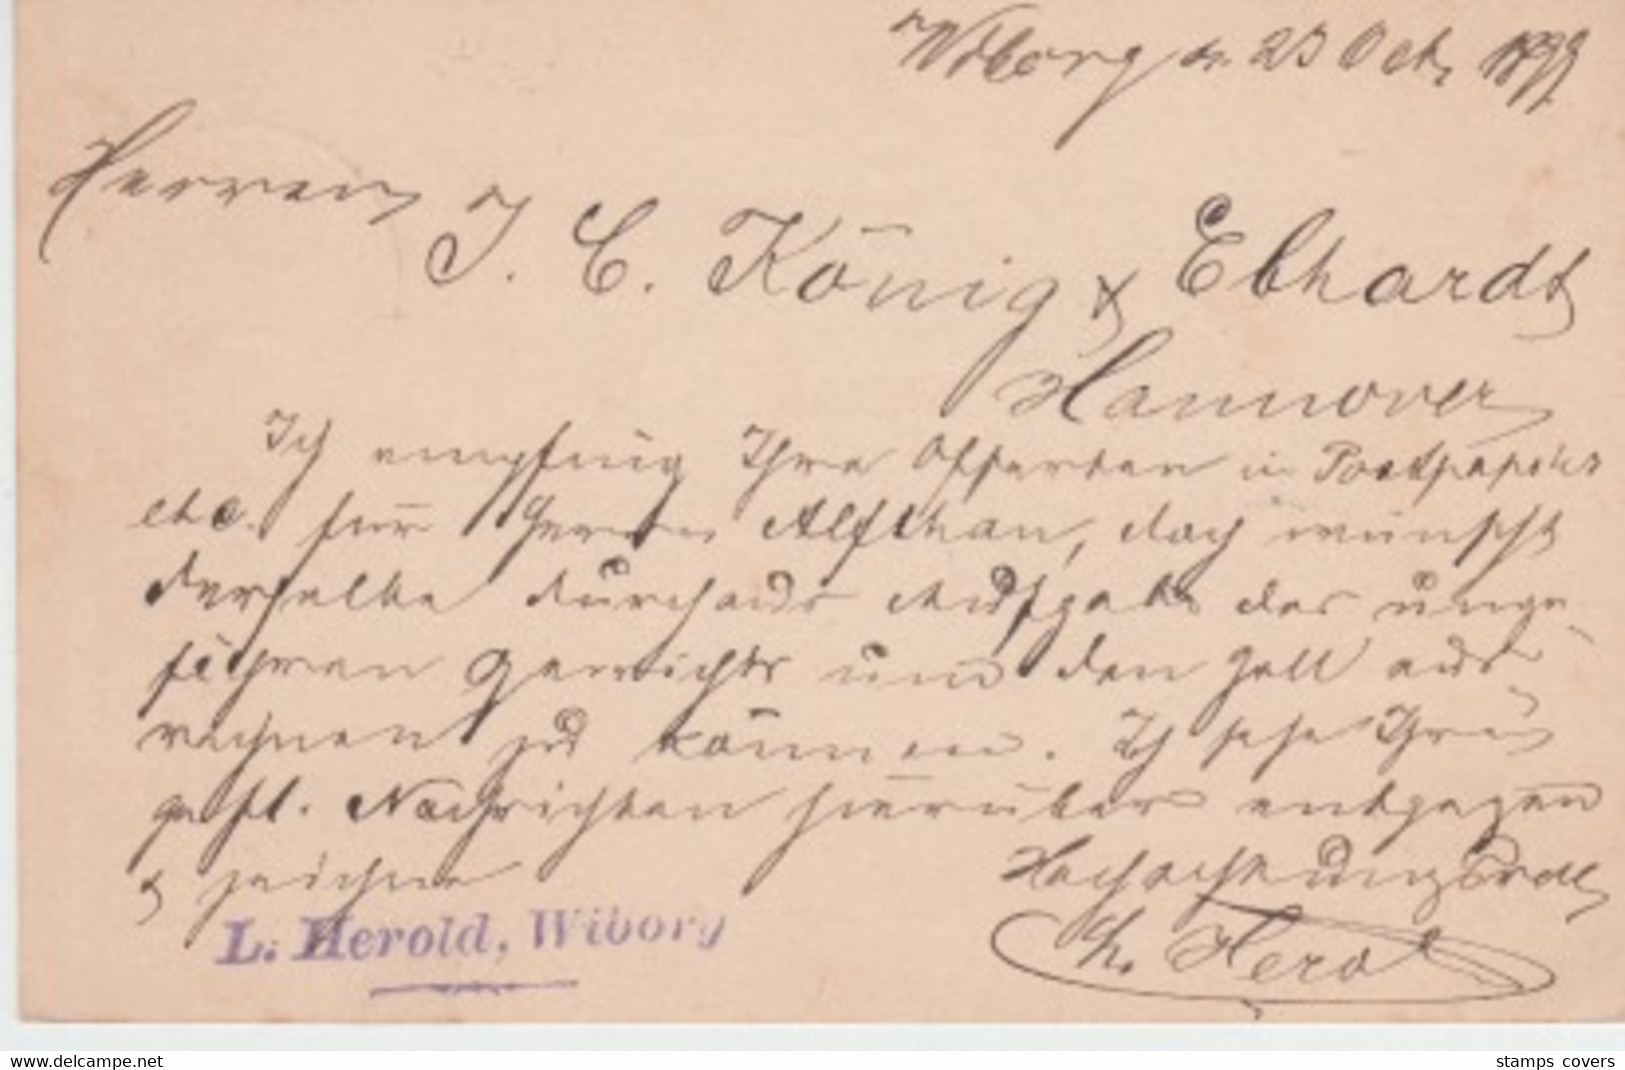 Wiborg d. 23 Oct. 1899
Herren
J. C. König & Ebhardt
Hannover
Ich empfing Ihre Offerten in Postpapier
etc. für Herrn Alfthan, doch wünscht
derselbe durchaus Aufgabe des unge-
fähren Gewichts um den Zoll aus-
rechnen zu können. Ich sehe Ihren
gefl. Nachrichten hierüber entgegen
& zeichne
Hochachtungsvoll
L. Herold
L. Herold, Wiborg
www.delcampe.net
stamps covers